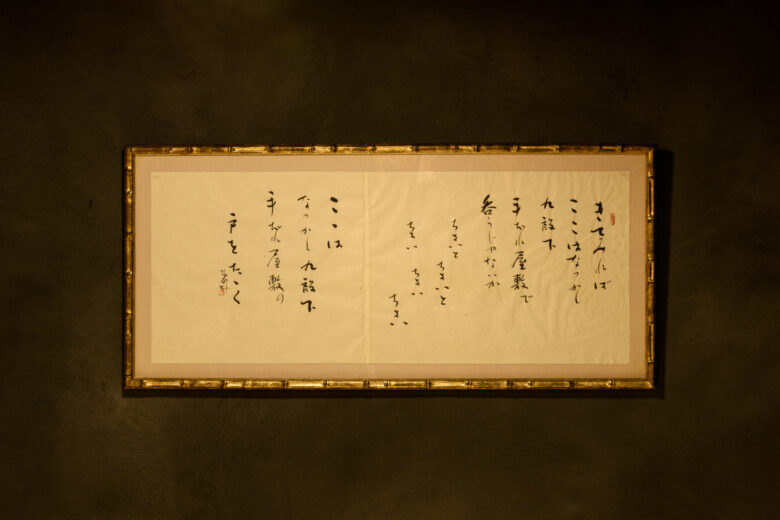 きてみれば
ここはなつかし
九段下
屋敷で
呑うじゃないか
ちょいと
ちょいと
ちょい
ちょい
ちょい
ここは
なつかし九段下
屋敷の
戸をたゝく